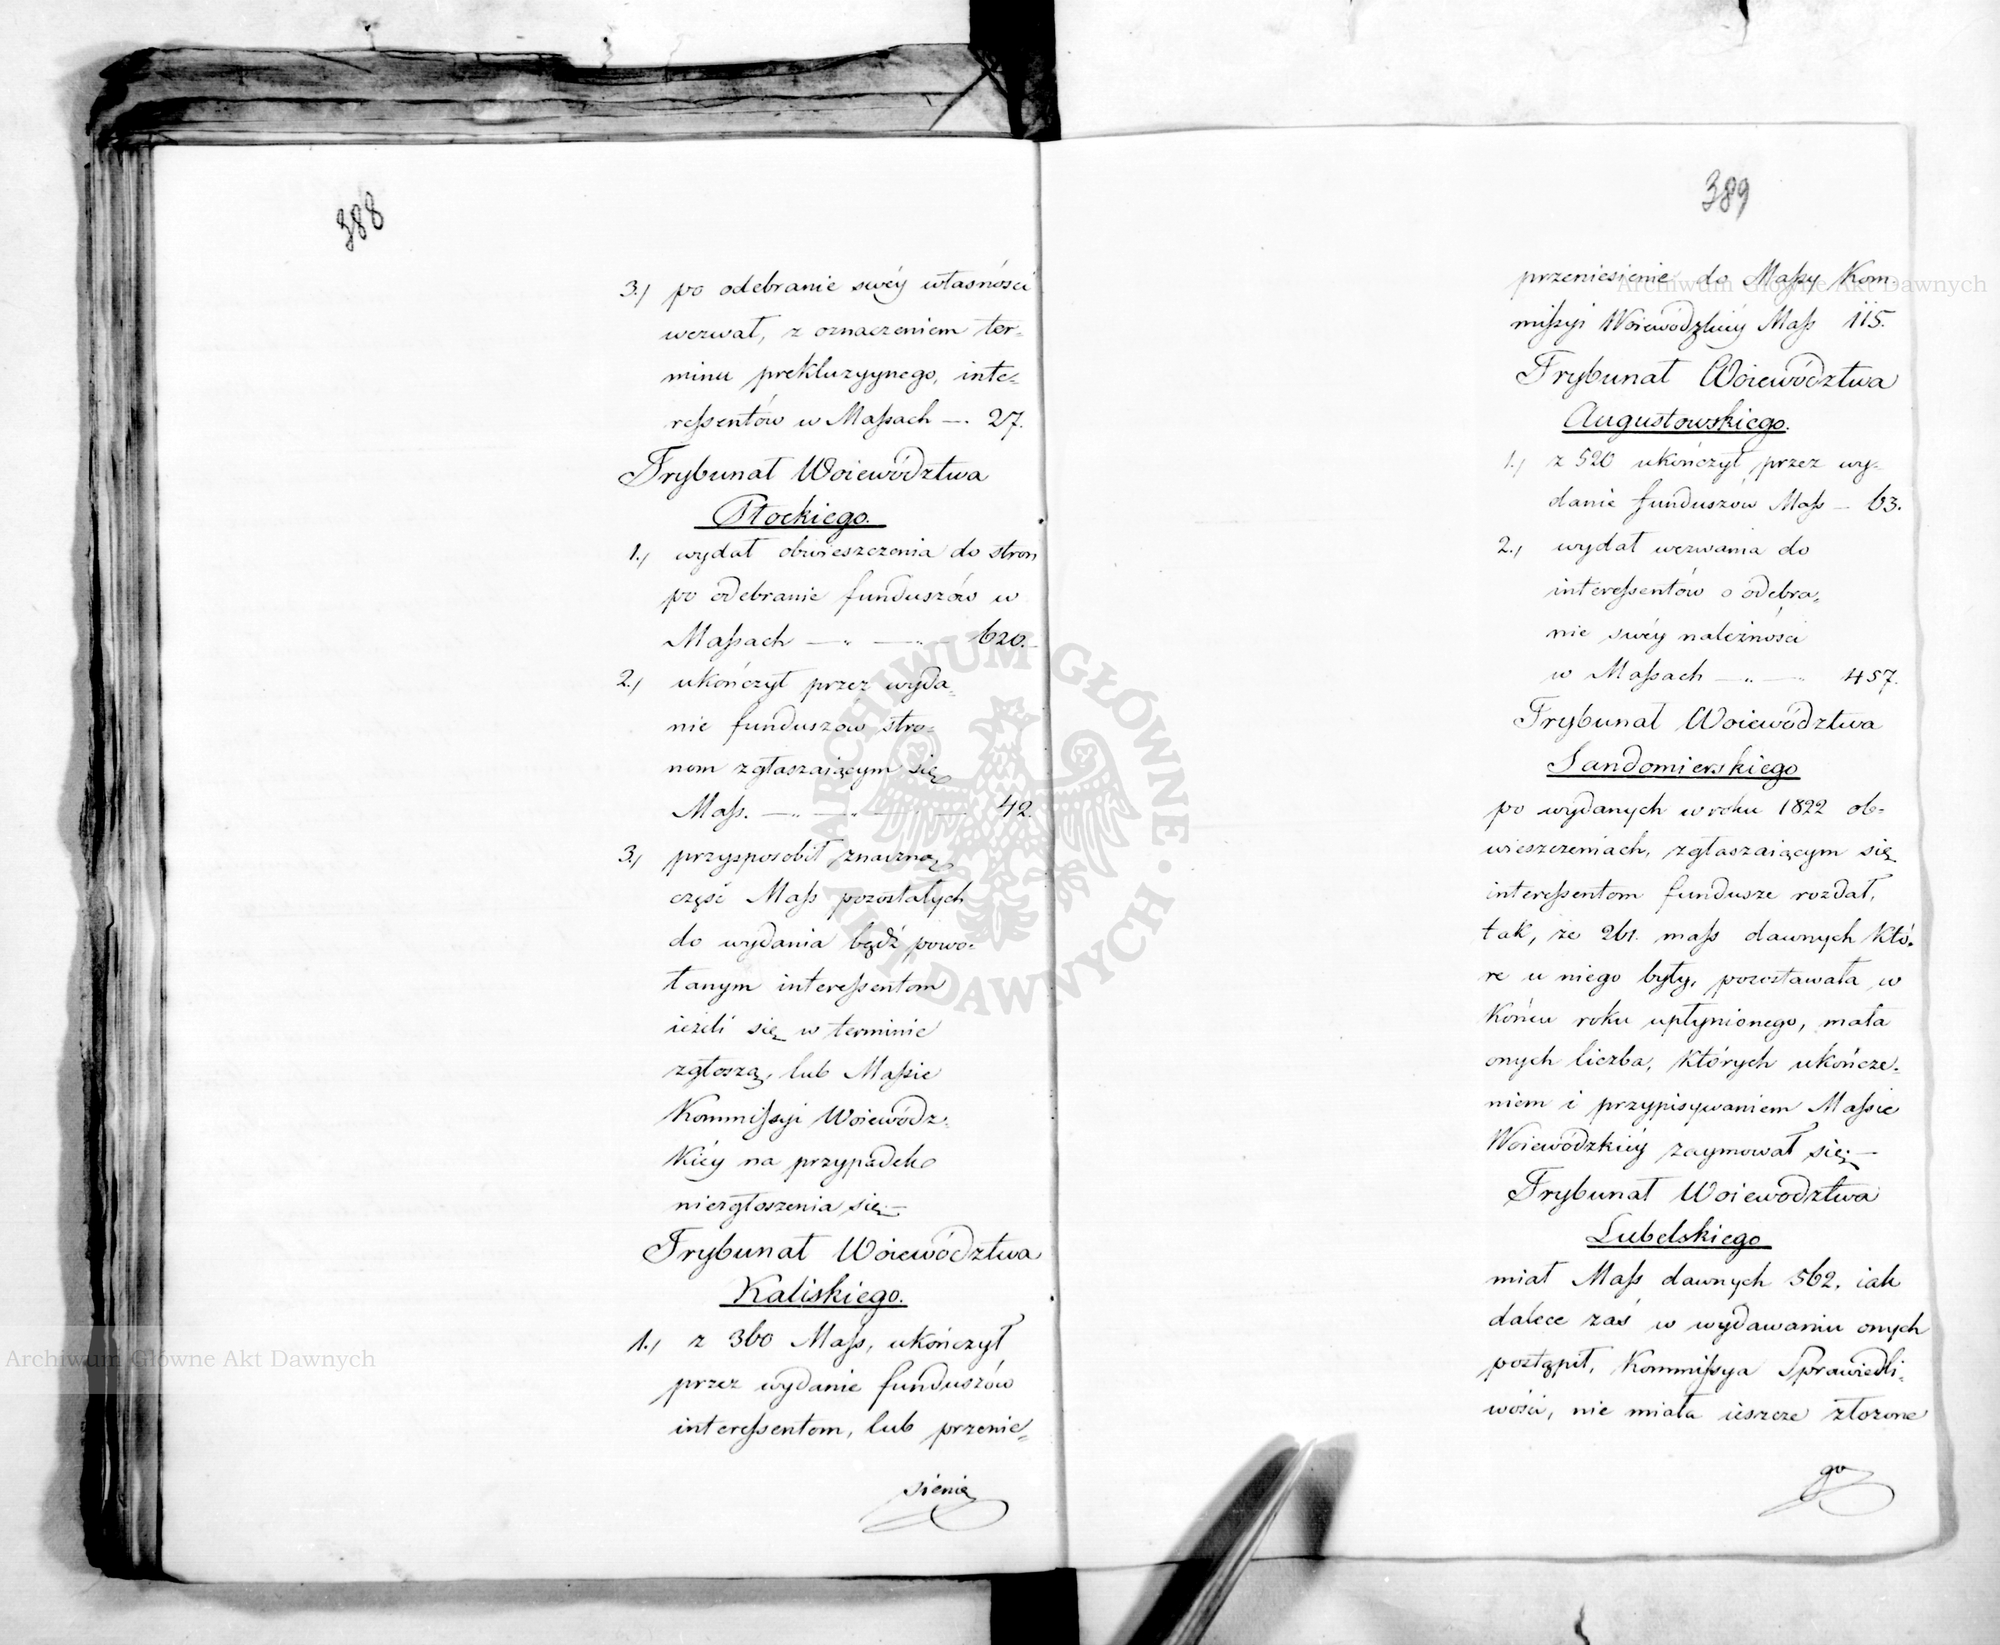 388
3./ po odebranie swéy własności
wezwał, z oznaczeniem ter=
minu prekluzyynego, inte=
ressentów w Massach —. 27.
Trybunał Woiewództwa
Płockiego.
1./ wydał obwieszczenia do stron
po odebranie funduszów w
Massach — " — " — 620.
2./ ukończył przez wyda=
nie funduszów stro=
nom zgłaszaiącym się
Mass. — " — " — " — 42.
3./ przysposobił znaczną
część Mass pozostałych
do wydania bądź powo=
łanym interessentom
ieżeli się w terminie
zgłoszą, lub Massie
Kommissyi Woiewódz=
kiéy na przypadek
niezgłoszenia się.—
Trybunał Woiewództwa
Kaliskiego.
1./ z 360 Mass, ukończył
przez wydanie funduszów
interessentom, lub przenie=
sienie
389
przeniesienie do Massy Kom=
missyi Woiewódzkiéy Mass 115.
Trybunał Woiewództwa
Augustowskiego.
1./ z 520 ukończył przez wy=
danie funduszów Mass — 63.
2./ wydał wezwania do
interessentów o odebra=
nie swéy należności
w Massach — " — " 457.
Trybunał Woiewództwa
Sandomierskiego
po wydanych w roku 1822 ob=
wieszczeniach, zgłaszaiącym się
interessentom fundusze rozdał,
tak, że 261. mass dawnych któ=
re u niego były, pozostawała w
końcu roku upłynionego, mała
onych liczba, których ukończe=
niem i przypisywaniem Massie
Woiewódzkiéy zaymował się.—
Trybunał Woiewodztwa
Lubelskiego
miał Mass dawnych 562. iak
dalece zaś w wydawaniu onych
postąpił, Kommissya Sprawiedli=
wości, nie miała ieszcze złożone
go
Archiwum Główne Akt Dawnych
Archiwum Główne Akt Dawnych
ARCHIWUM GŁÓWNE · AKT DAWNYCH ·